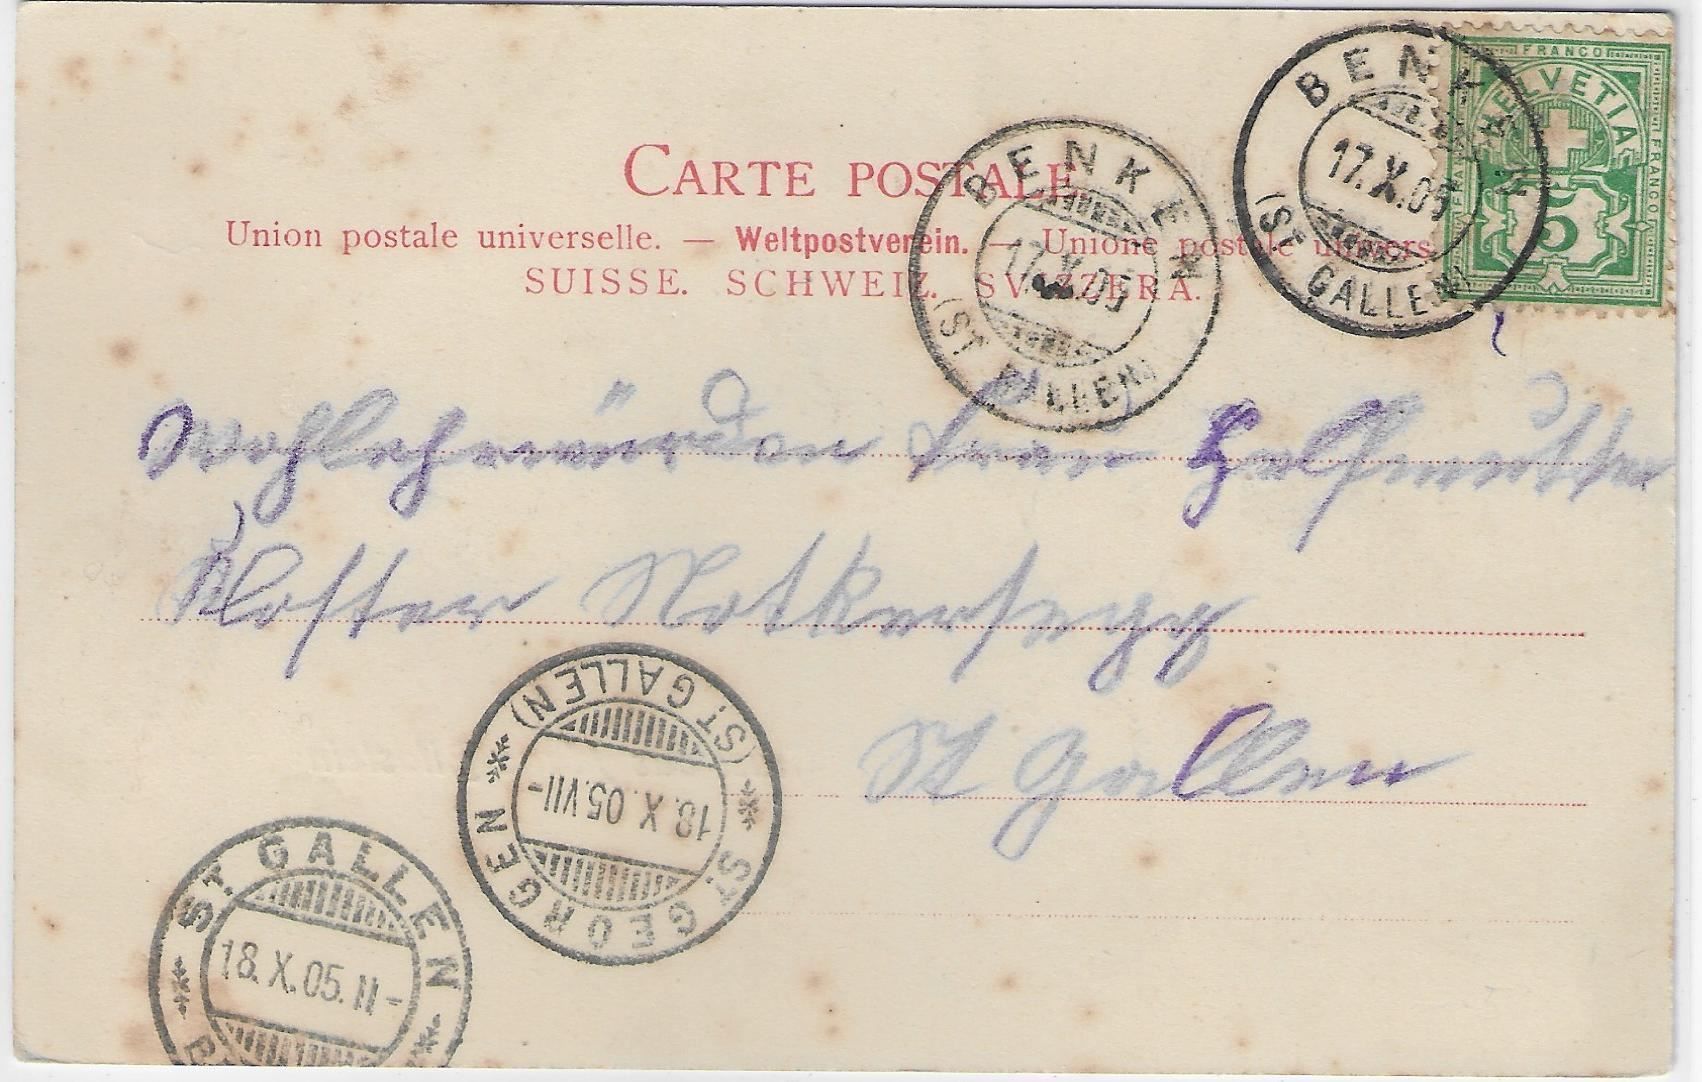 FRANCO
HELVETIA
FRANCO
FRANCO
5
BENKEN
17.X.05
(ST. GALLEN)
BENKEN
17.X.05
(ST. GALLEN)
CARTE POSTALE
Union postale universelle. — Weltpostverein. — Unione postale univers
SUISSE. SCHWEIZ. SVIZZERA.
Wohlehrwürden Frau Helfmutter
Kloster Notkersegg
St Gallen
(ST. GALLEN)
18.X.05.VII-
ST. GEORGEN
ST. GALLEN
18.X.05.II-